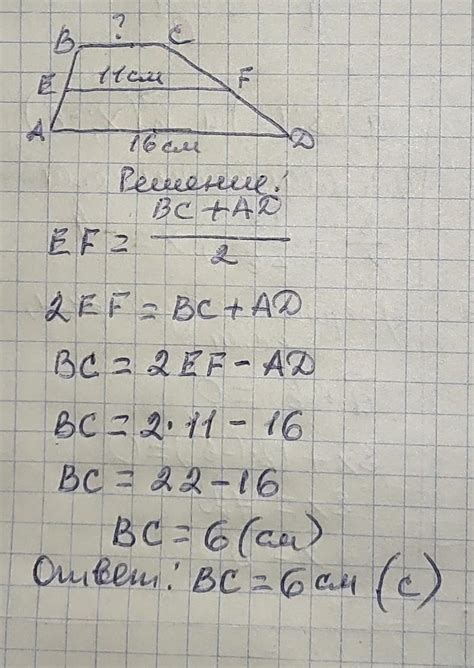 ?
B C
E 11см F
A D
16см
Решение:
EF = BC + AD
2
2EF = BC + AD
BC = 2EF - AD
BC = 2·11 - 16
BC = 22 - 16
BC = 6 (см)
Ответ: BC = 6 см (с)